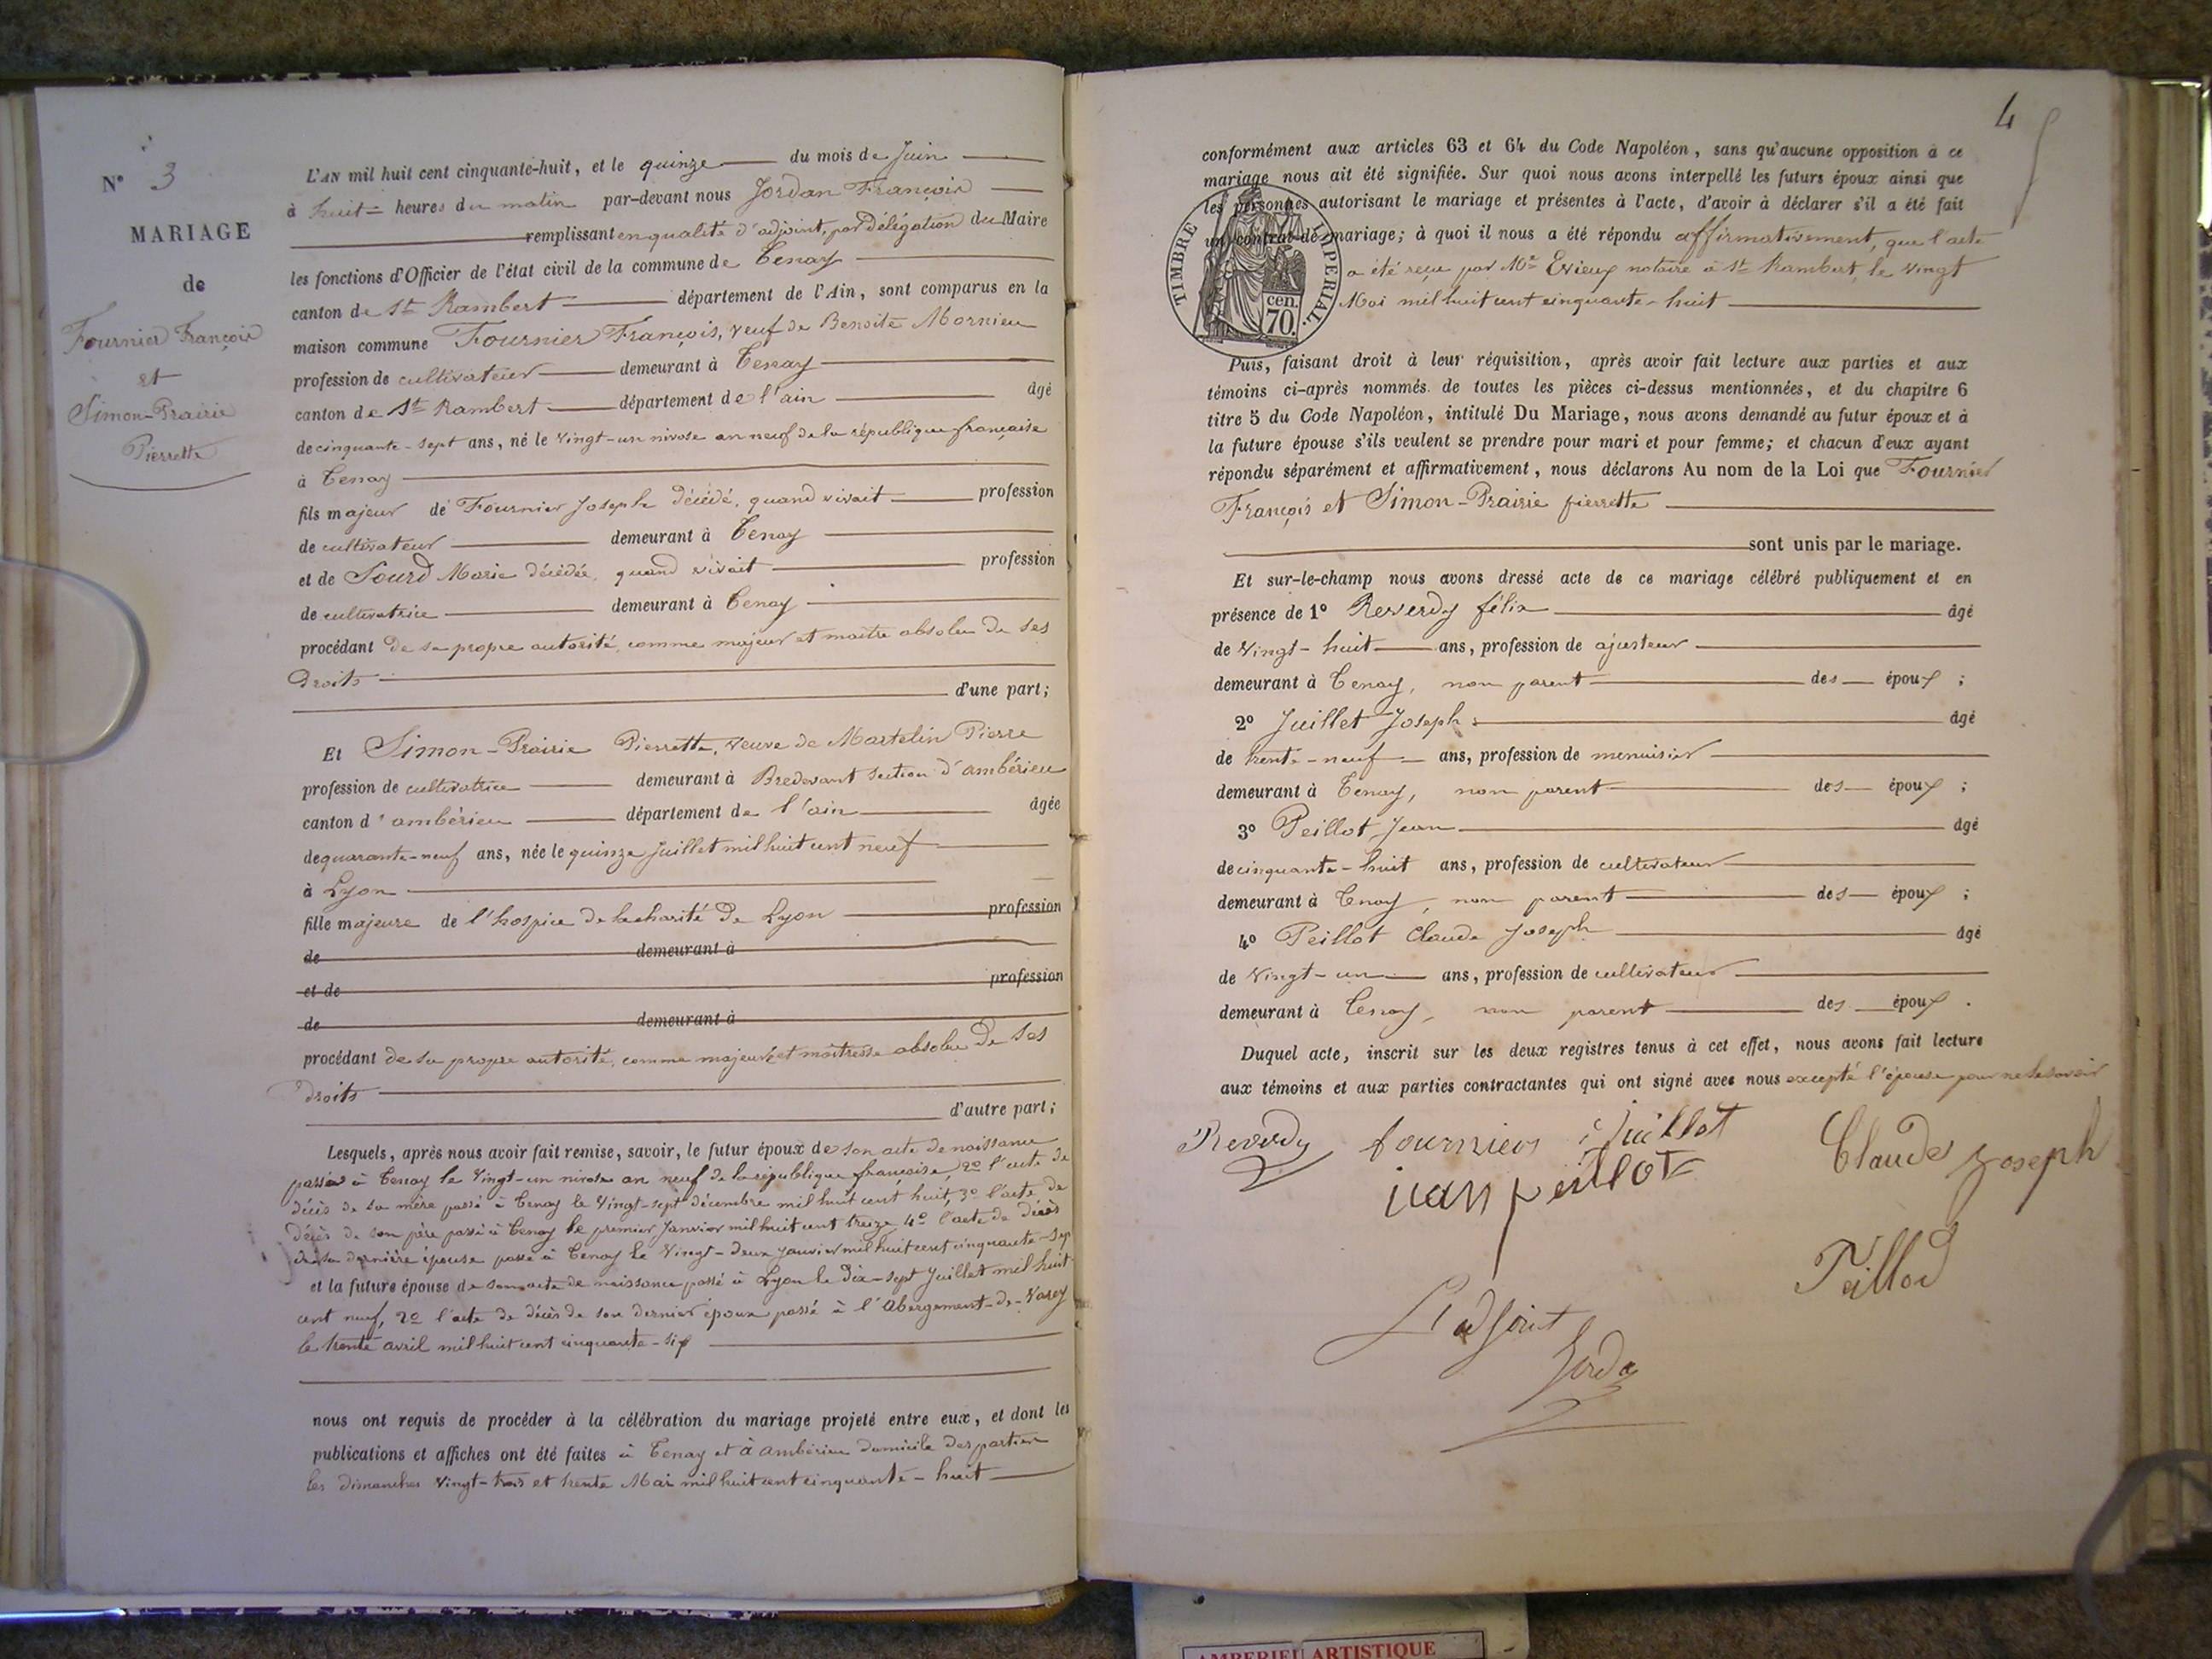 N° 3
MARIAGE
de
Fournier François
et
Simon-Prairie
Pierrette
L'AN mil huit cent cinquante-huit, et le quinze du mois de Juin
à huit heures du matin par-devant nous Jordan François
remplissant en qualité d'adjoint, par Délégation du Maire
les fonctions d'Officier de l'état civil de la commune de Tenay
canton de St Rambert département de l'Ain, sont comparus en la
maison commune Fournier François, veuf de Benoite Mornieu
profession de cultivateur demeurant à Tenay
canton de St Rambert département de l'ain âgé
de cinquante-sept ans, né le vingt-un nivose an neuf de la république française
à Tenay
fils majeur de Fournier Joseph Décédé, quand vivait profession
de cultivateur demeurant à Tenay
et de Sourd Marie décédée, quand vivait profession
de cultivatrice demeurant à Tenay
procédant de sa propre autorité, comme majeur et maitre absolu de ses
Droits
d'une part;
Et Simon-Prairie Pierrette, veuve de Martelin Pierre
profession de cultivatrice demeurant à Bredevant section d'ambérieu
canton d'ambérieu département de l'ain âgée
de quarante-neuf ans, née le quinze Juillet mil huit cent neuf
à Lyon
fille majeure de l'hospice de la charité de Lyon profession
de demeurant à
et de profession
de demeurant à
procédant de sa propre autorité, comme majeure et maîtresse absolue de ses
Droits
d'autre part;
Lesquels, après nous avoir fait remise, savoir, le futur époux de son acte de naissance
passé à Tenay le vingt-un nivose an neuf de la république française, 2° l'acte de
décès de sa mère passé à Tenay le vingt-sept décembre mil huit cent huit, 3° l'acte de
décès de son père passé à Tenay le premier Janvier mil huit cent treize 4° l'acte de décès
de sa dernière épouse passé à Tenay le vingt-deux janvier mil huit cent cinquante-sep
et la future épouse de son acte de naissance passé à Lyon le dix-sept Juillet mil huit
cent neuf, 2° l'acte de décès de son dernier époux passé à l'Abergement-de-Varey
le trente avril mil huit cent cinquante-six
nous ont requis de procéder à la célébration du mariage projeté entre eux, et dont les
publications et affiches ont été faites à Tenay et à ambérieu domicile des parties
les dimanches vingt-trois et trente Mai mil huit cent cinquante-huit
4
conformément aux articles 63 et 64 du Code Napoléon, sans qu'aucune opposition à ce
mariage nous ait été signifiée. Sur quoi nous avons interpellé les futurs époux ainsi que
les personnes autorisant le mariage et présentes à l'acte, d'avoir à déclarer s'il a été fait
un contrat de mariage; à quoi il nous a été répondu affirmativement, que l'acte
a été reçu par Me Evieux notaire à St Rambert, le vingt
Mai mil huit cent cinquante-huit
TIMBRE IMPERIAL.
cen.
70.
Puis, faisant droit à leur réquisition, après avoir fait lecture aux parties et aux
témoins ci-après nommés de toutes les pièces ci-dessus mentionnées, et du chapitre 6
titre 5 du Code Napoléon, intitulé Du Mariage, nous avons demandé au futur époux et à
la future épouse s'ils veulent se prendre pour mari et pour femme; et chacun d'eux ayant
répondu séparément et affirmativement, nous déclarons Au nom de la Loi que Fournier
François et Simon-Prairie pierrette
sont unis par le mariage.
Et sur-le-champ nous avons dressé acte de ce mariage célébré publiquement et en
présence de 1° Reverdy félix âgé
de vingt-huit ans, profession de ajusteur
demeurant à Tenay, non parent des époux ;
2° Juillet Joseph âgé
de trente-neuf ans, profession de menuisier
demeurant à Tenay, non parent des époux ;
3° Peillot Jean âgé
de cinquante-huit ans, profession de cultivateur
demeurant à Tenay, non parent des époux ;
4° Peillot Claude Joseph âgé
de vingt-un ans, profession de cultivateur
demeurant à Tenay, non parent des époux .
Duquel acte, inscrit sur les deux registres tenus à cet effet, nous avons fait lecture
aux témoins et aux parties contractantes qui ont signé avec nous excepté l'épouse pour ne le savoir
Reverdy fournier Juillet Claude Joseph
jean peillot
Peillod
L'adjoint
Jordan
AMBERIEU ARTISTIQUE